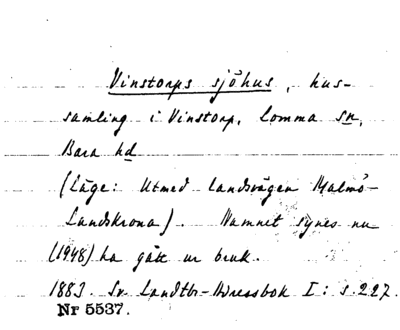 Vinstorps sjöhus, hus-
samling i Vinstorp, Lomma sn,
Bara hd
(Läge: Utmed landsvägen Malmö-
Landskrona). Namnet synes nu
(1948) ha gått ur bruk.
1883. Sv Landtbr-Adressbok I: s. 227.
Nr 5537.